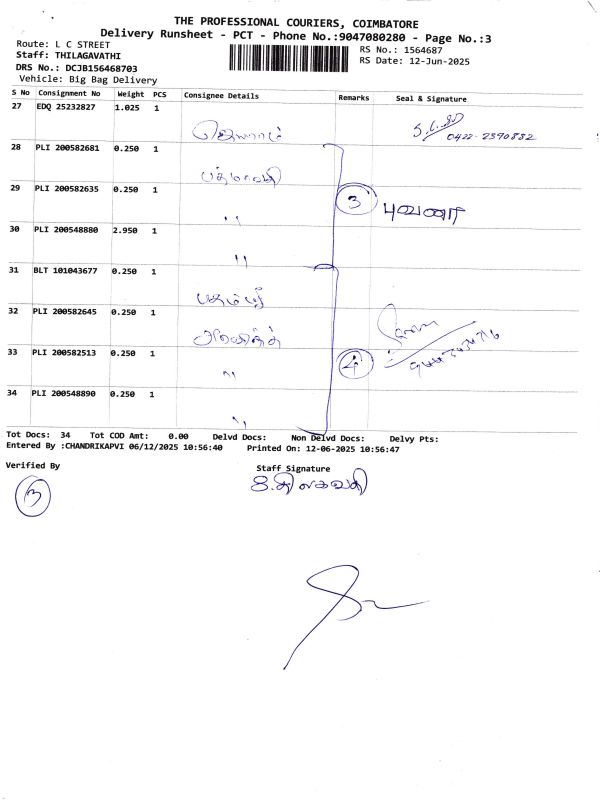 THE PROFESSIONAL COURIERS, COIMBATORE
Delivery Runsheet - PCT - Phone No.:9047080280 - Page No.:3
Route: L C STREET
Staff: THILAGAVATHI
DRS No.: DCJB156468703
Vehicle: Big Bag Delivery
RS No.: 1564687
RS Date: 12-Jun-2025
S No Consignment No Weight PCS Consignee Details Remarks Seal & Signature
27 EDQ 25232827 1.025 1
ஜெயராம்
0422-2390832
28 PLI 200582681 0.250 1
பத்மாவதி
29 PLI 200582635 0.250 1
" 3 புவனா
30 PLI 200548880 2.950 1
"
31 BLT 101043677 0.250 1
32 PLI 200582645 0.250 1
33 PLI 200582513 0.250 1
" 4
34 PLI 200548890 0.250 1
"
Tot Docs: 34 Tot COD Amt: 0.00 Delvd Docs: Non Delvd Docs: Delvy Pts:
Entered By :CHANDRIKAPVI 06/12/2025 10:56:40 Printed On: 12-06-2025 10:56:47
Verified By
Staff Signature
3
S.திலகவதி